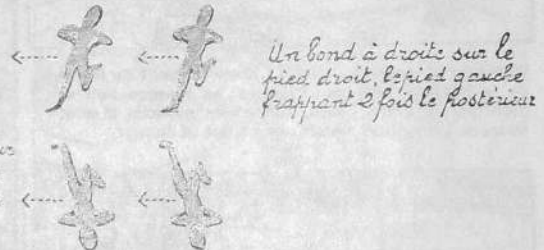 Un bond à droite sur le
pied droit, le pied gauche
frappant 2 fois le postérieur